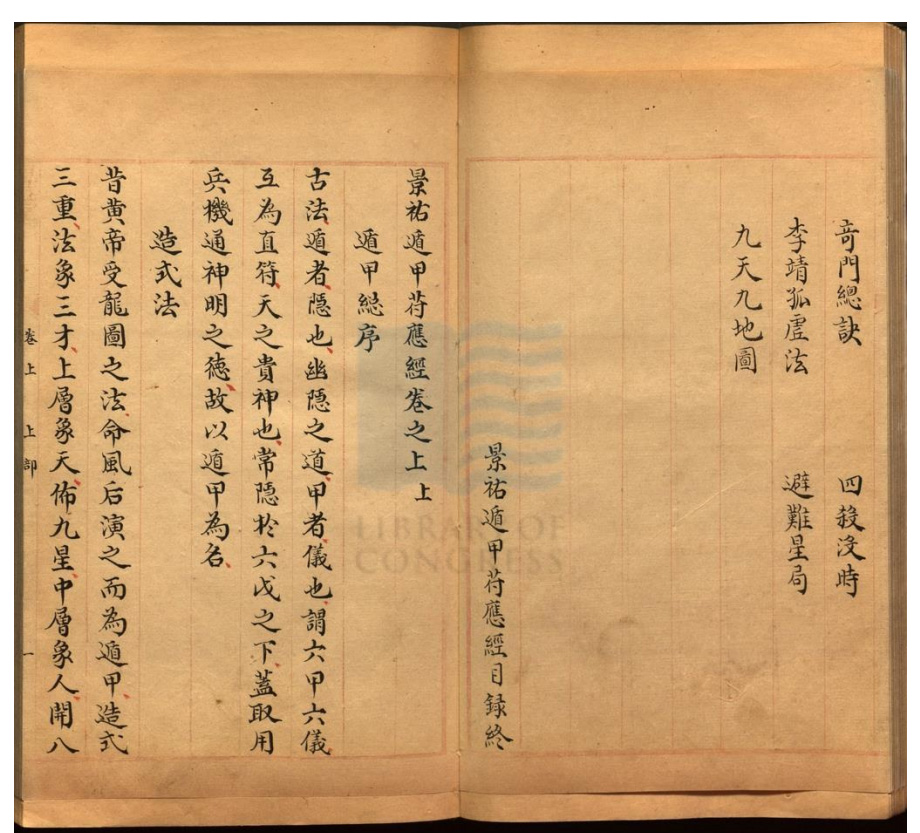 竒門總訣　四殺没時
李靖狐虛法　避難星局
九天九地圖
景祐遁甲苻應經目録終
景祐遁甲苻應經卷之上上
遁甲總序
古法遁者隱也幽隱之道甲者儀也謂六甲六儀
互為直符天之貴神也常隱於六戊之下蓋取用
兵機通神明之德故以遁甲為名
造式法
昔黄帝受龍圖之法命風后演之而為遁甲造式
三重法象三才上層象天佈九星中層象人開八
卷上　上部　一
LIBRARY OF
CONGRESS